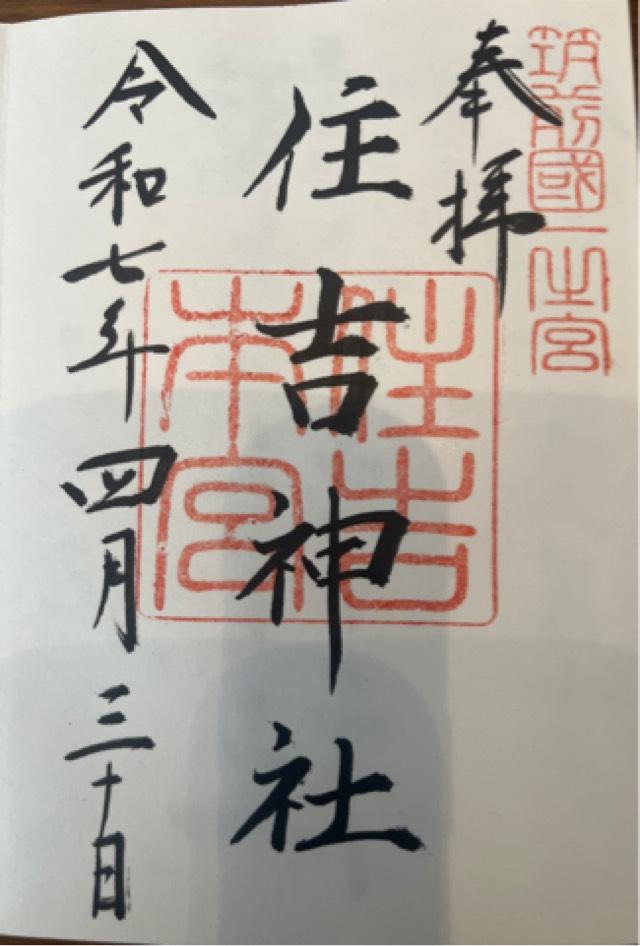 筑前國一之宮
奉拝
住吉神社
住吉本宮
令和七年四月三十日